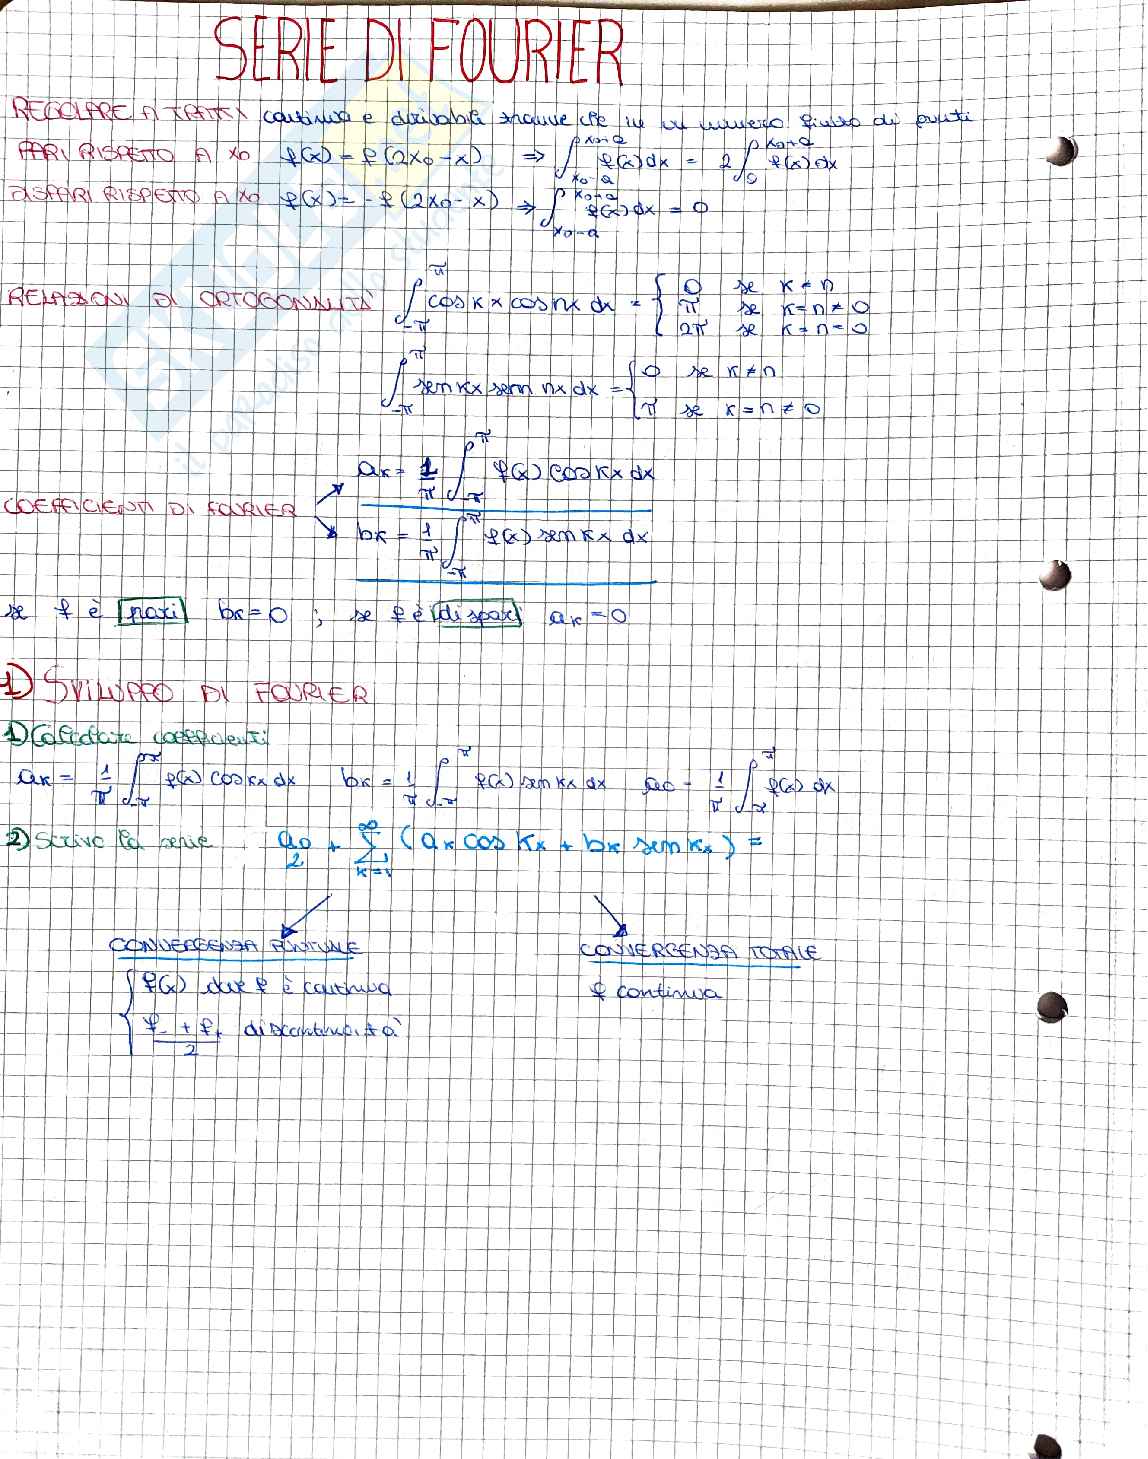 SERIE DI FOURIER
REGOLARE A TRATTI continua e derivabile tranne che in un numero finito di punti
PARI RISPETTO A x₀ f(x) = f(2x₀-x) ⇒ ∫_{x₀-a}^{x₀+a} f(x)dx = 2∫_0^{x₀+a} f(x)dx
DISPARI RISPETTO A x₀ f(x) = -f(2x₀-x) ⇒ ∫_{x₀-a}^{x₀+a} f(x)dx = 0
RELAZIONI DI ORTOGONALITÀ ∫_{-π}^{π} cos kx cos nx dx = { 0 se k≠n
π se k=n≠0
2π se k=n=0
∫_{-π}^{π} sen kx sen nx dx = { 0 se k≠n
π se k=n≠0
aₖ = 1/π ∫_{-π}^{π} f(x) cos kx dx
COEFFICIENTI DI FOURIER
bₖ = 1/π ∫_{-π}^{π} f(x) sen kx dx
se f è pari bₖ=0 ; se f è dispari aₖ=0
1) SVILUPPO DI FOURIER
1) Calcolare coefficienti
aₖ = 1/π ∫_{-π}^{π} f(x) cos kx dx bₖ = 1/π ∫_{-π}^{π} f(x) sen kx dx a₀ = 1/π ∫_{-π}^{π} f(x) dx
2) Scrivo la serie a₀/2 + ∑_{k=1}^{∞} (aₖ cos kx + bₖ sen kx) =
CONVERGENZA PUNTUALE CONVERGENZA TOTALE
{ f(x) dove f è continua f continua
(f₋ + f₊)/2 discontinuità